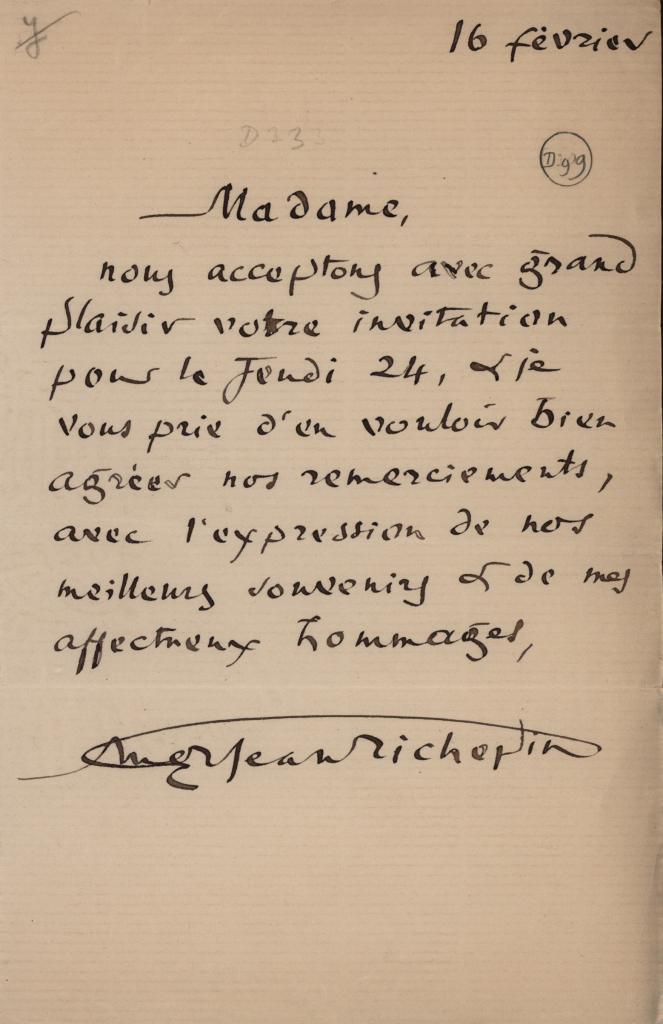 16 février
D 233
D. 99
Madame,
nous acceptons avec grand
plaisir votre invitation
pour le Jeudi 24, & je
vous prie d'en vouloir bien
agréer nos remerciements,
avec l'expression de nos
meilleurs souvenirs & de mes
affectueux hommages,
Jean Richepin